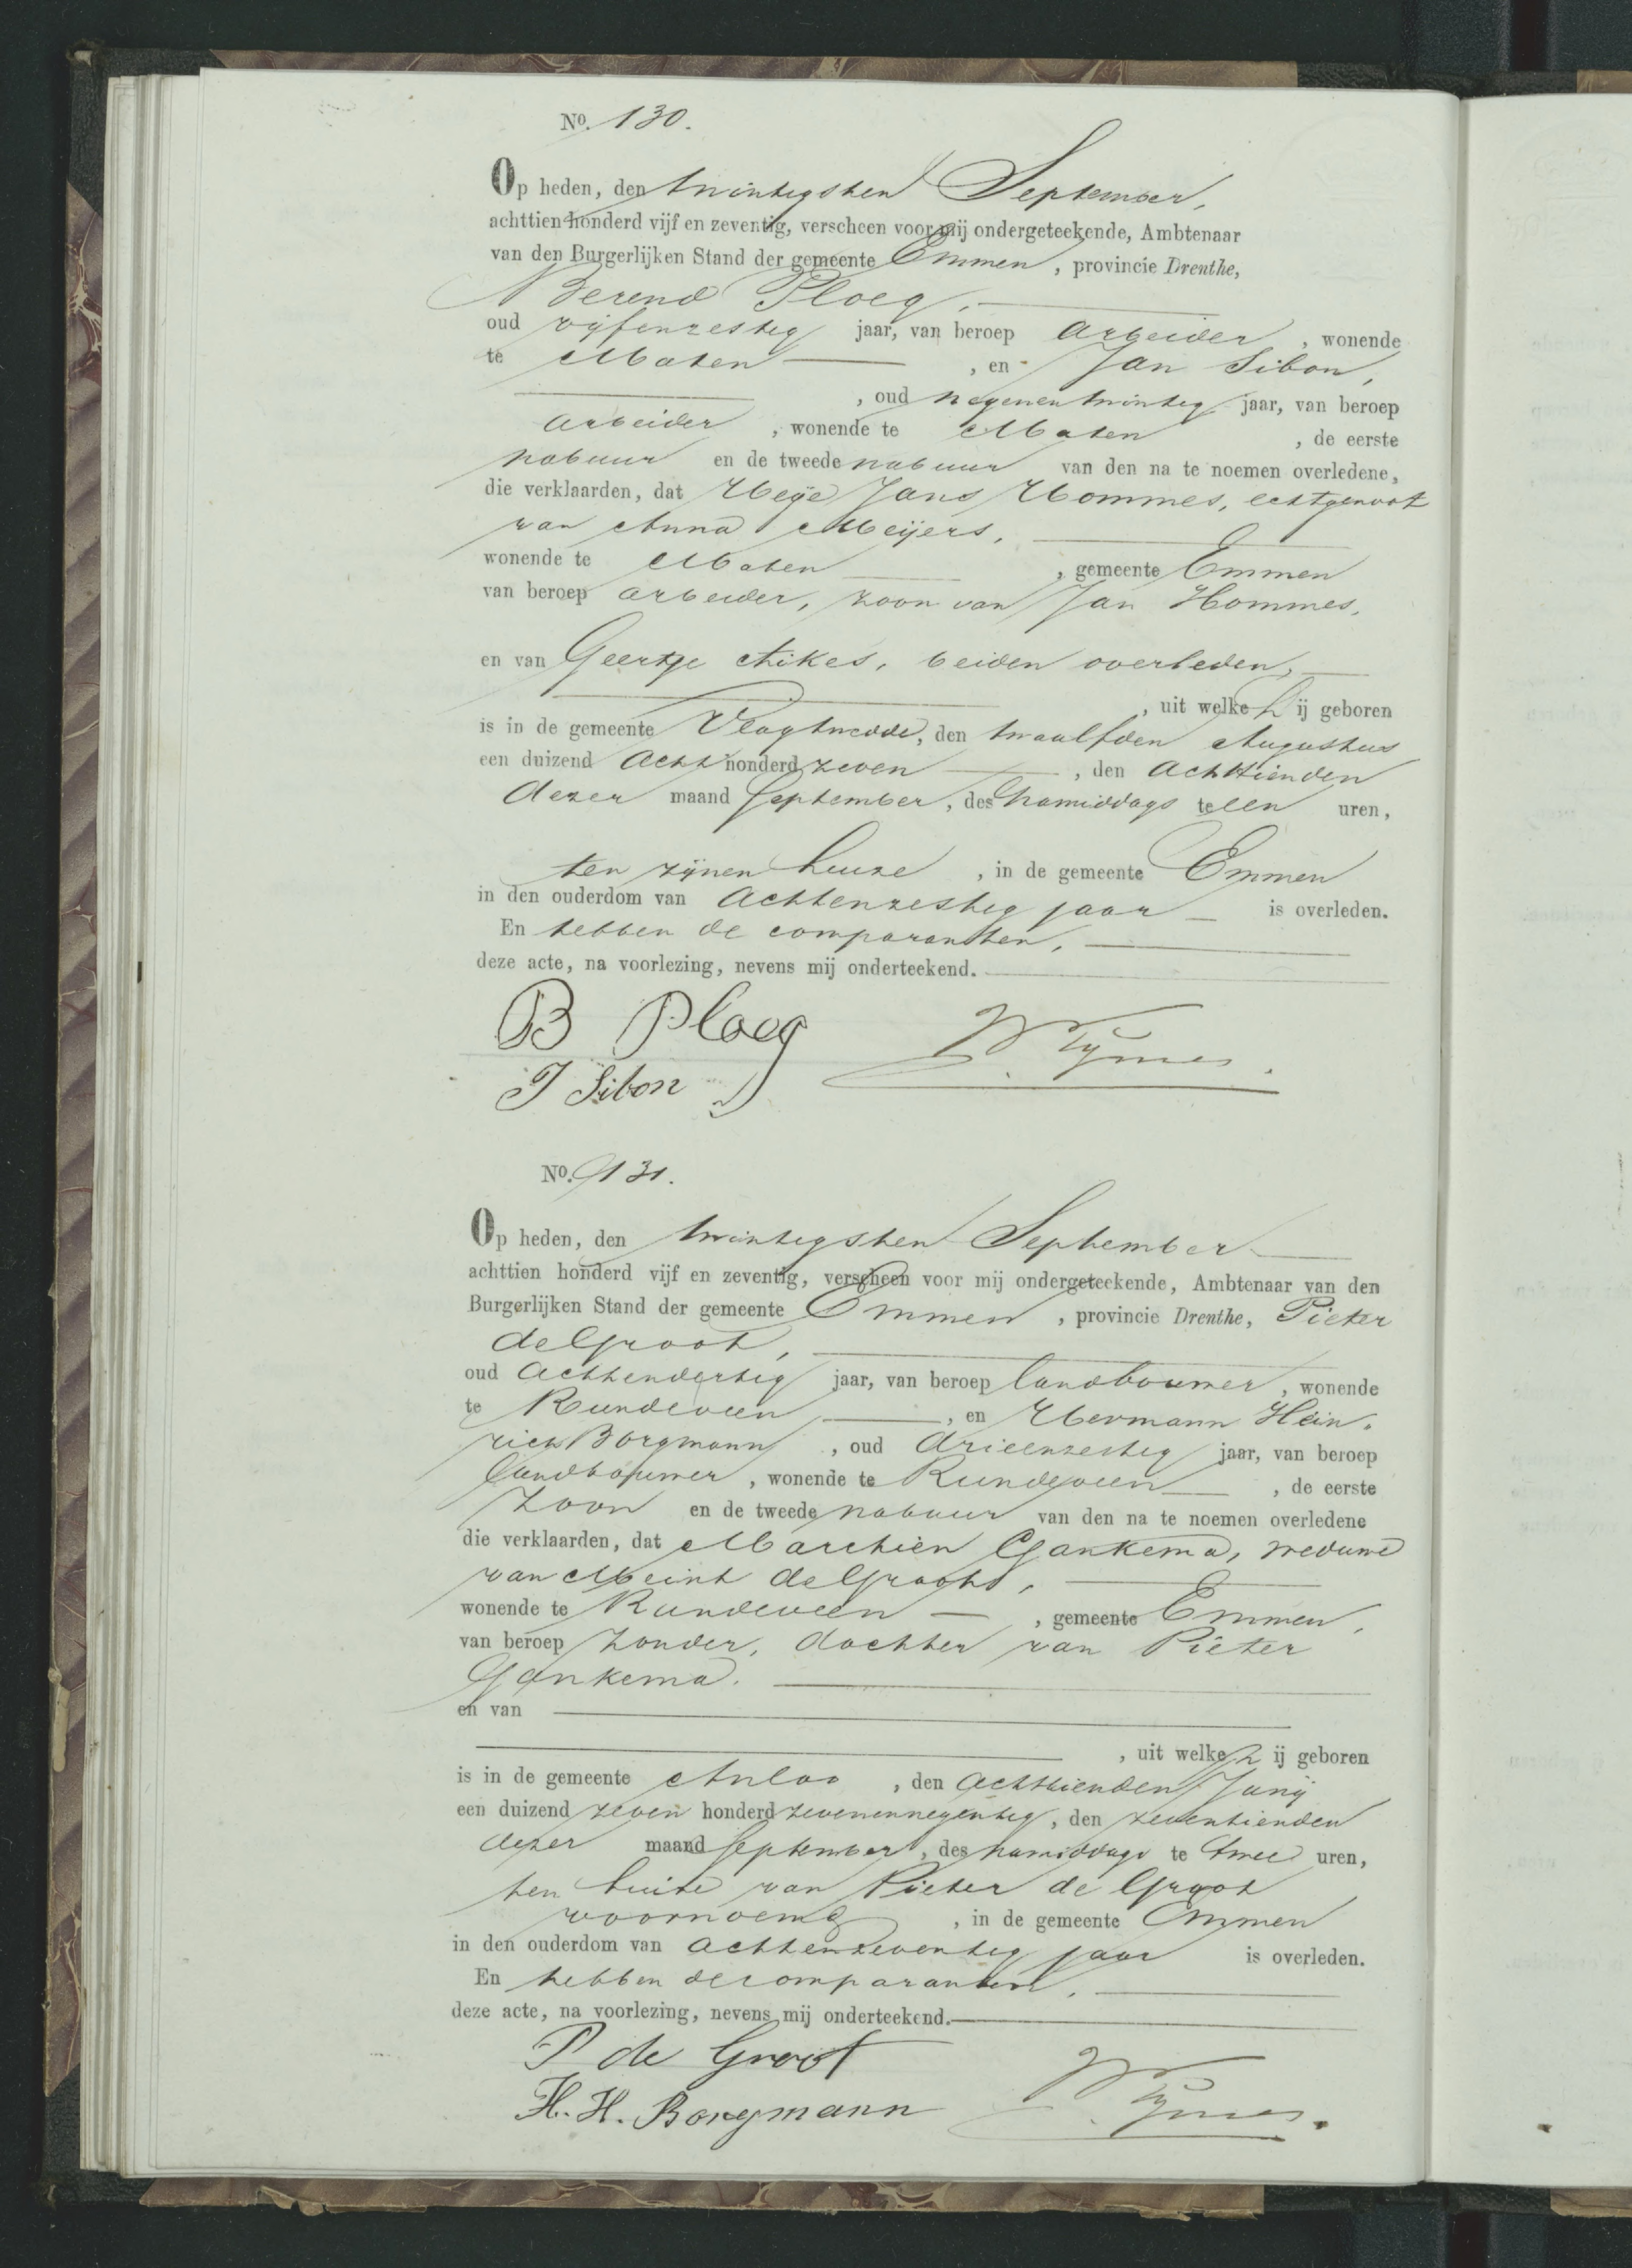 No. 130.
Op heden, den twintigsten September,
achttien honderd vijf en zeventig, verscheen voor mij ondergeteekende, Ambtenaar
van den Burgerlijken Stand der gemeente Emmen, provincie Drenthe,
Berend Ploeg,
oud vijfenzestig jaar, van beroep arbeider, wonende
te Maten, en Jan Sibon,
, oud negenentwintig jaar, van beroep
arbeider, wonende te Maten, de eerste
nabuur en de tweede nabuur van den na te noemen overledene,
die verklaarden, dat Heije Jans Hommes, echtgenoot
van Anna Meijers,
wonende te Maten, gemeente Emmen
van beroep arbeider, zoon van Jan Hommes,
en van Geertje Aikes, beiden overleden,
, uit welke hij geboren
is in de gemeente Vlagtwedde, den twaalfden Augustus
een duizend acht honderd zeven, den achttienden
dezer maand September, des namiddags te een uren,
ten zijnen huize, in de gemeente Emmen
in den ouderdom van achtenzestig jaar is overleden.
En hebben de comparanten,
deze acte, na voorlezing, nevens mij onderteekend.
B Ploeg
J Sibon
No. 131.
Op heden, den twintigsten September
achttien honderd vijf en zeventig, verscheen voor mij ondergeteekende, Ambtenaar van den
Burgerlijken Stand der gemeente Emmen, provincie Drenthe, Pieter
de Groot,
oud achtendertig jaar, van beroep landbouwer, wonende
te Rundeveen, en Hermann Hein-
rich Borgmann, oud drieenzestig jaar, van beroep
landbouwer, wonende te Rundeveen, de eerste
zoon en de tweede nabuur van den na te noemen overledene
die verklaarden, dat Marchien Gankema, weduwe
van Meint de Groot,
wonende te Rundeveen, gemeente Emmen,
van beroep zonder, dochter van Pieter
Gankema.
en van
, uit welke hij geboren
is in de gemeente Anloo, den achttienden Junij
een duizend zeven honderd zevenennegentig, den zeventienden
dezer maand September, des namiddags te twee uren,
ten huize van Pieter de Groot
voornoemd, in de gemeente Emmen
in den ouderdom van achtenzeventig jaar is overleden.
En hebben de comparanten,
deze acte, na voorlezing, nevens mij onderteekend.
P de Groot
H. H. Borgmann